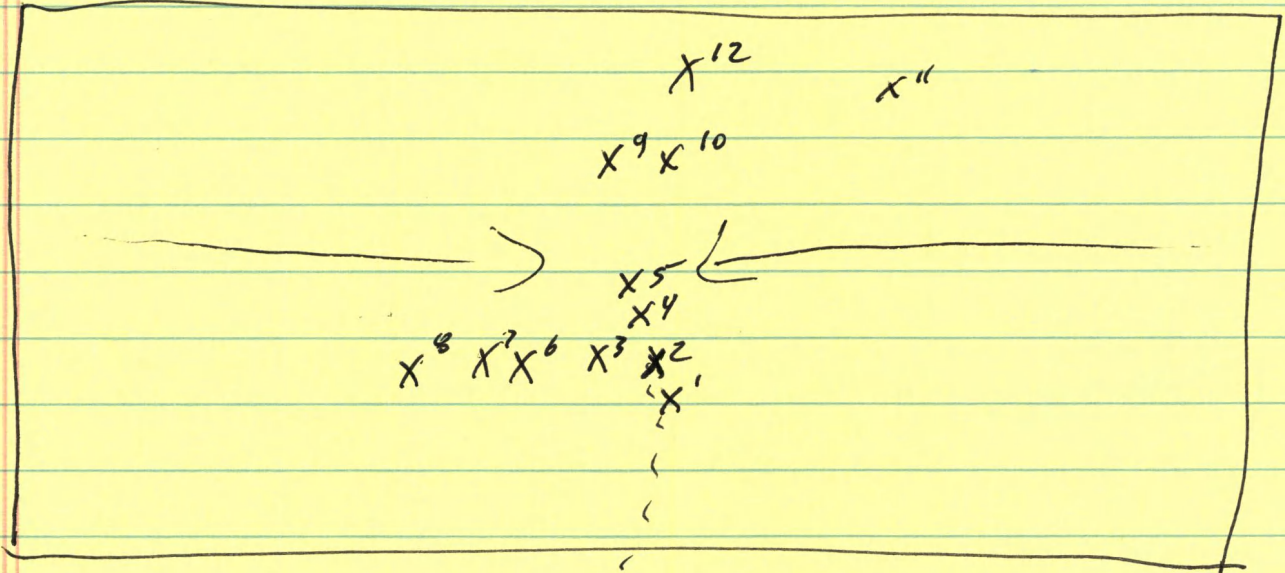 X12 X11
X9 X10
X5
X4
X8 X7 X6 X3 X2
X1